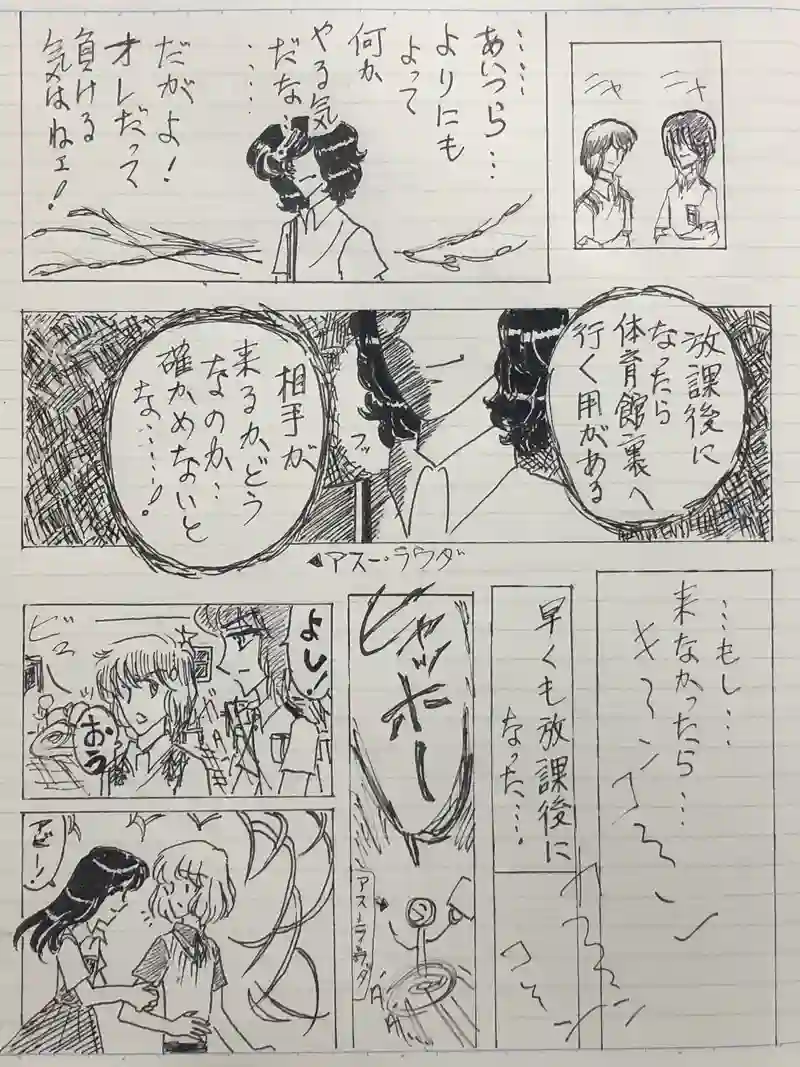 ニヤ
ニヤ
……
あいつら…
よりにも
よって
何か
やる気
だな…
……
だがよ!
オレだって
負ける
気はねェ!
放課後に
なったら
体育館裏へ
行く用がある
フッ
相手が
来るかどう
なのか…
確かめないと
な……!
アスー・ラウダ
…もし…
来なかったら…
キーンコーン
カーン
コーン
早くも放課後に
なった….
ヒャッホー
アスーラウダ
よし!
おう